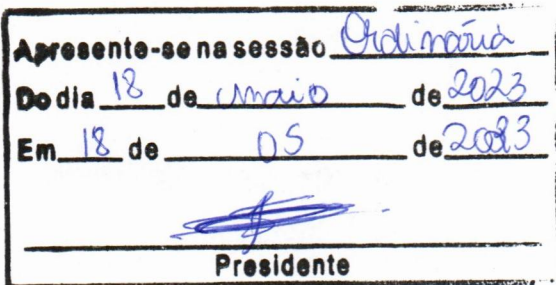 Apresente-se na sessão Ordinária
Do dia 18 de maio de 2023
Em 18 de 05 de 2023
Presidente